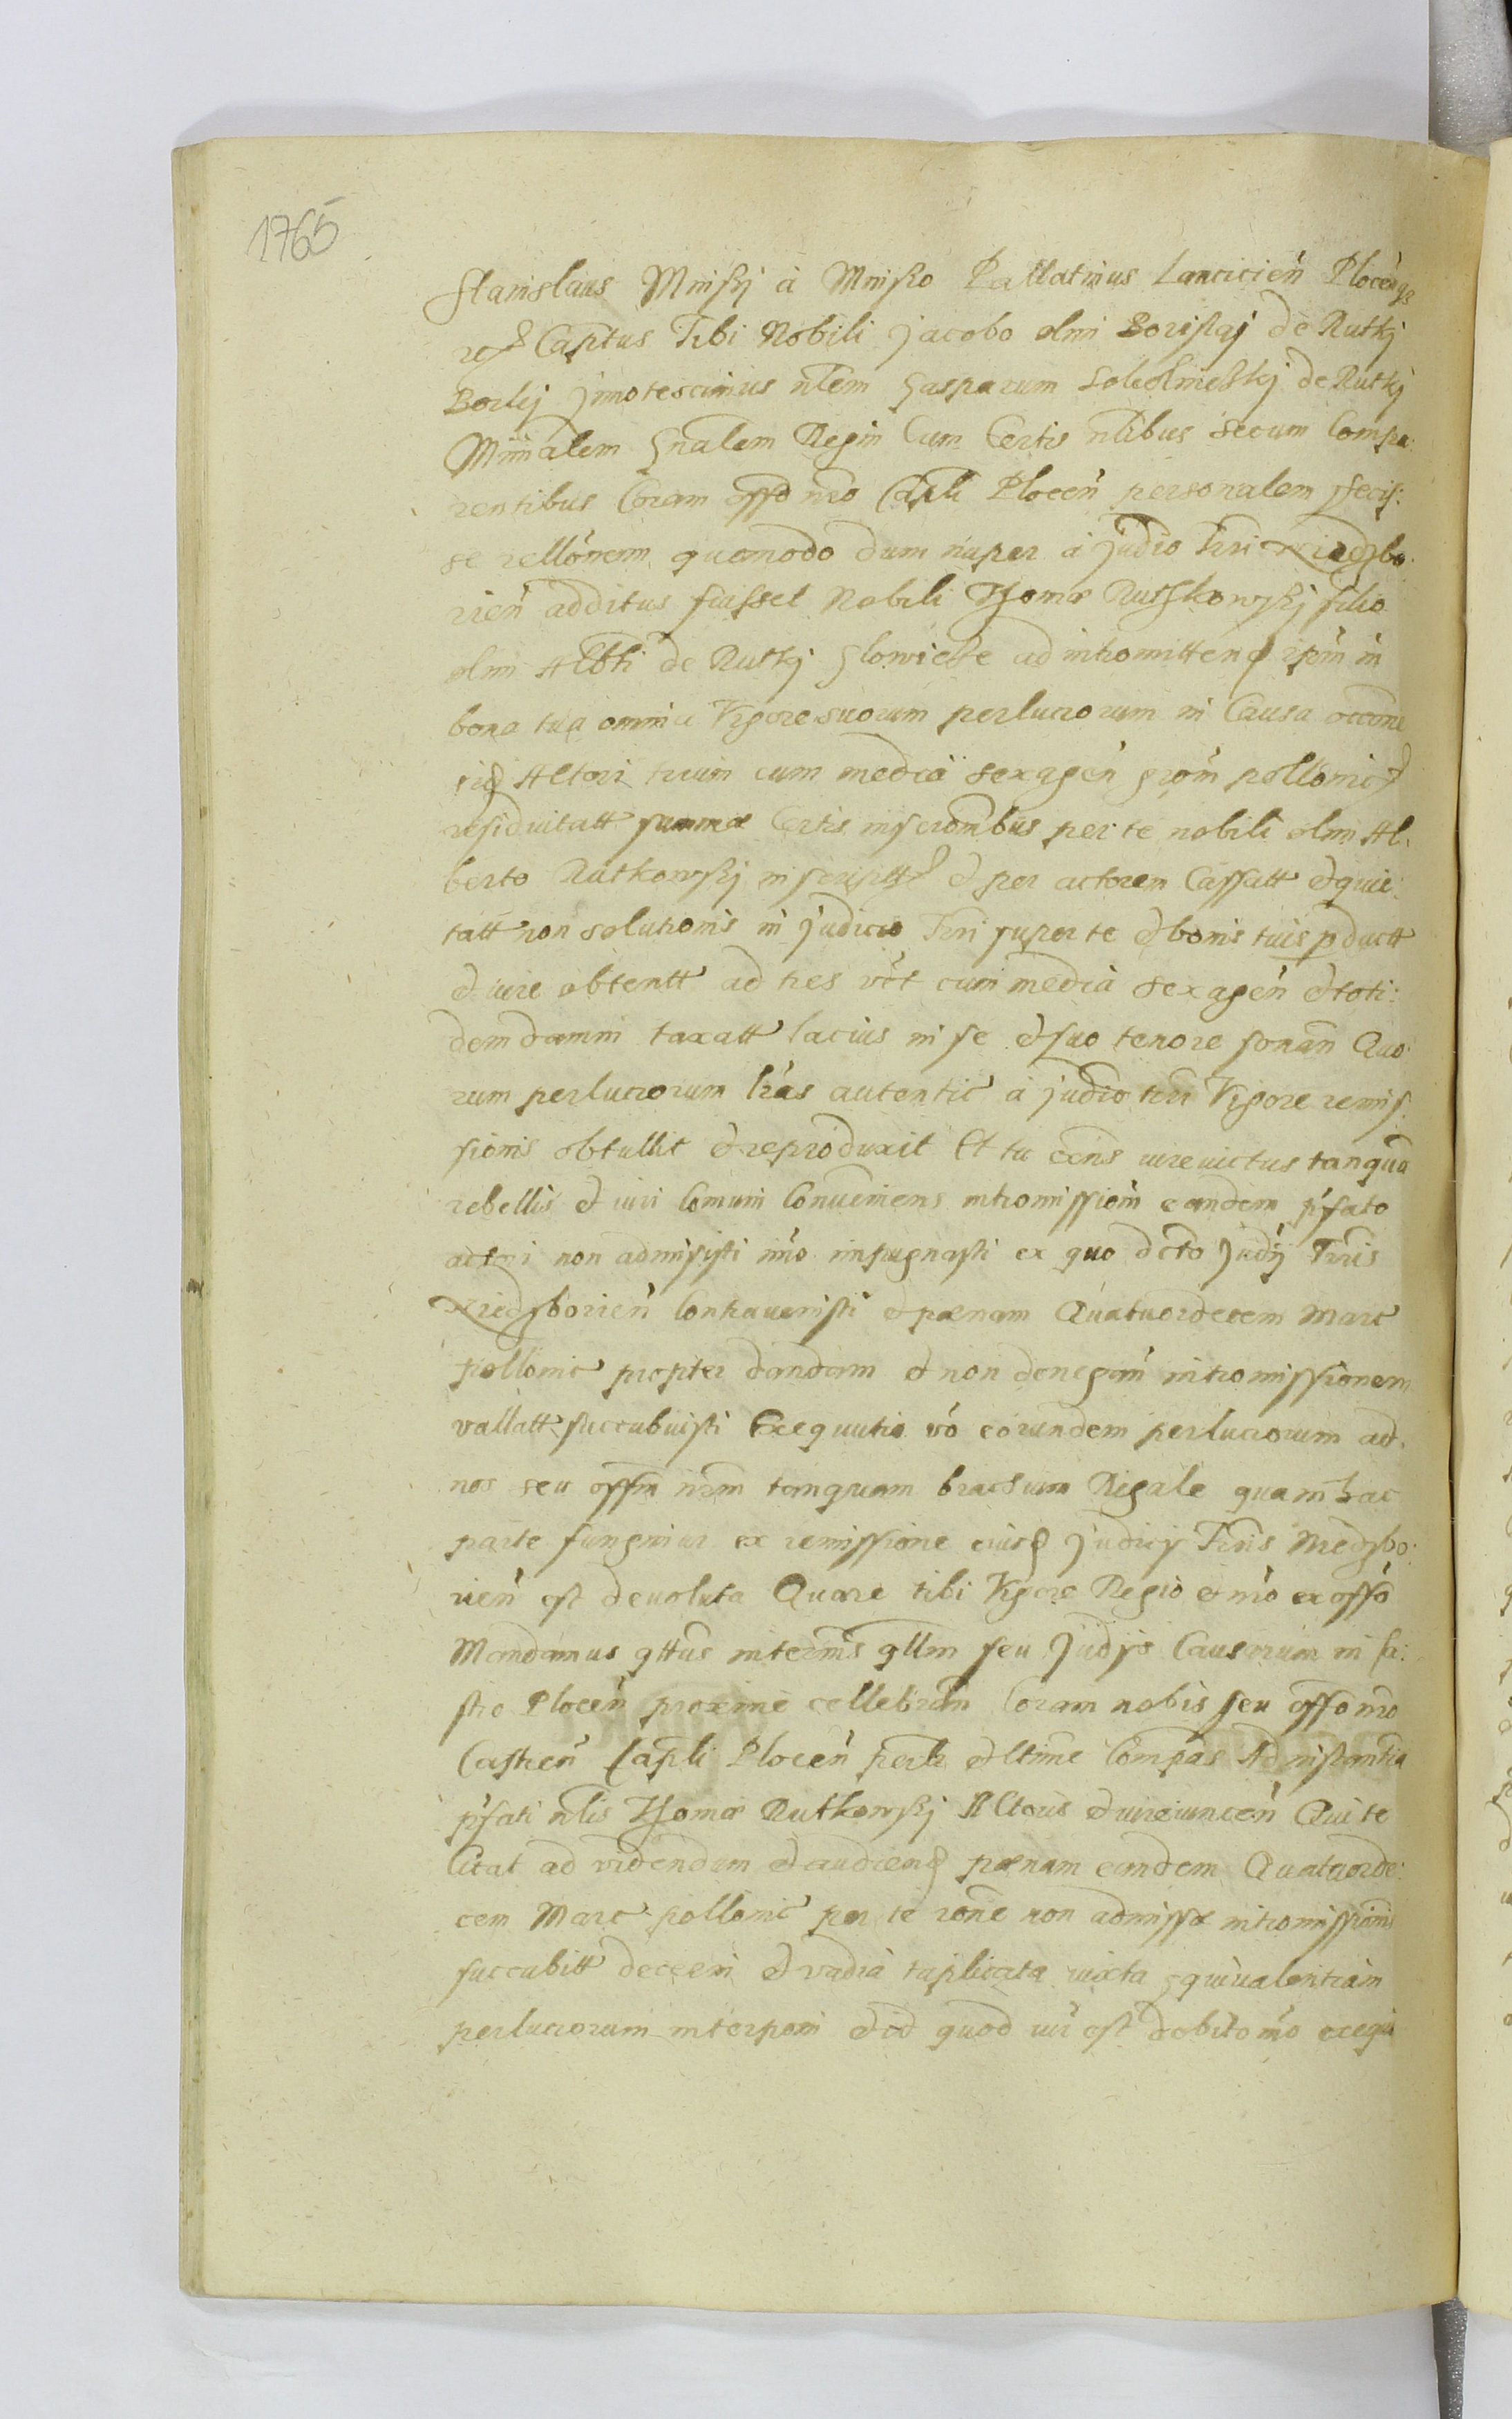 1765
Stanislaus Minskj à Minsko Pallatinus Lancicień Plocenq3
Captus Tibi Nobili Jacobo olmi Boriskaj de Rutkj
Borkij Jnnotescimus nlem Gasparum de Rutkj
Minralem Gnalem Regin Cum Certis nlibus secum Compa:
rentibus Coram offo nro Capli Plocen personalem fecis:
se rellonem quomodo dum nuper a judio Trri
rien additus fuisset Nobili Thomæ Ruthkowskj filio
olmi Albti de Rutkj Glowicke ad intromitten ipm in
bona tua omnia Vigore suorum perlucrorum in Causa occone
Actori trium cum media sexagen grom pollonic
residuitatt summæ Certis inscrombus per te nobili olmi Al:
berto Rutkowskj inscriptt et per actorem Cassatt et quie:
tatt non solutionis in judicio Trri super te et bonis tuis pductt
et iure obtentt ad tres vct cum media sexagen et toti:
dem damni taxatt lacius in se et suo tenore sonan Quo:
rum perlucrorum lras autentic à judio trri Vigore remis:
sionis obtullit et reproduxit Et tu exns iurevictus tanqua
rebellis et iuri Comuni Conveniens intromissiom eandem pfato
actori non admisisti imo impugnasti ex quo dcto Judij Trris
borien Contravenisti et pænam Quatuordecem Marc
pollonic propter dandam et non denegan intromissionem
vallatt succubuisti Exequutio vo eorundem perlucrorum ad
nos seu offm nrm tanquam brachium Regale qua in hac
parte fungimur ex remissione eiusd judicij Trris Niedzbo:
rien est devoluta Quare tibi Vigore Regio et nro ex offo
Mandamus qttus in termis qllm seu Judijs Causarum in Ca:
stro Plocen proxime cellebran Coram nobis seu offo nro
Castren Capli Plocen perlr et ltime Compas Ad instantia
pfati nlis Thomæ Rutkowskj Actoris et iurevincen Qui te
Citat ad videndum et audiend pænam eandem Quatuorde:
cem Marc pollonic per te rone non admissæ intromissionis
succubitt decerni et vadia triplicata iuxta equivalentiam
perlucrorum interponi et id quod iuris est debito mo exequi